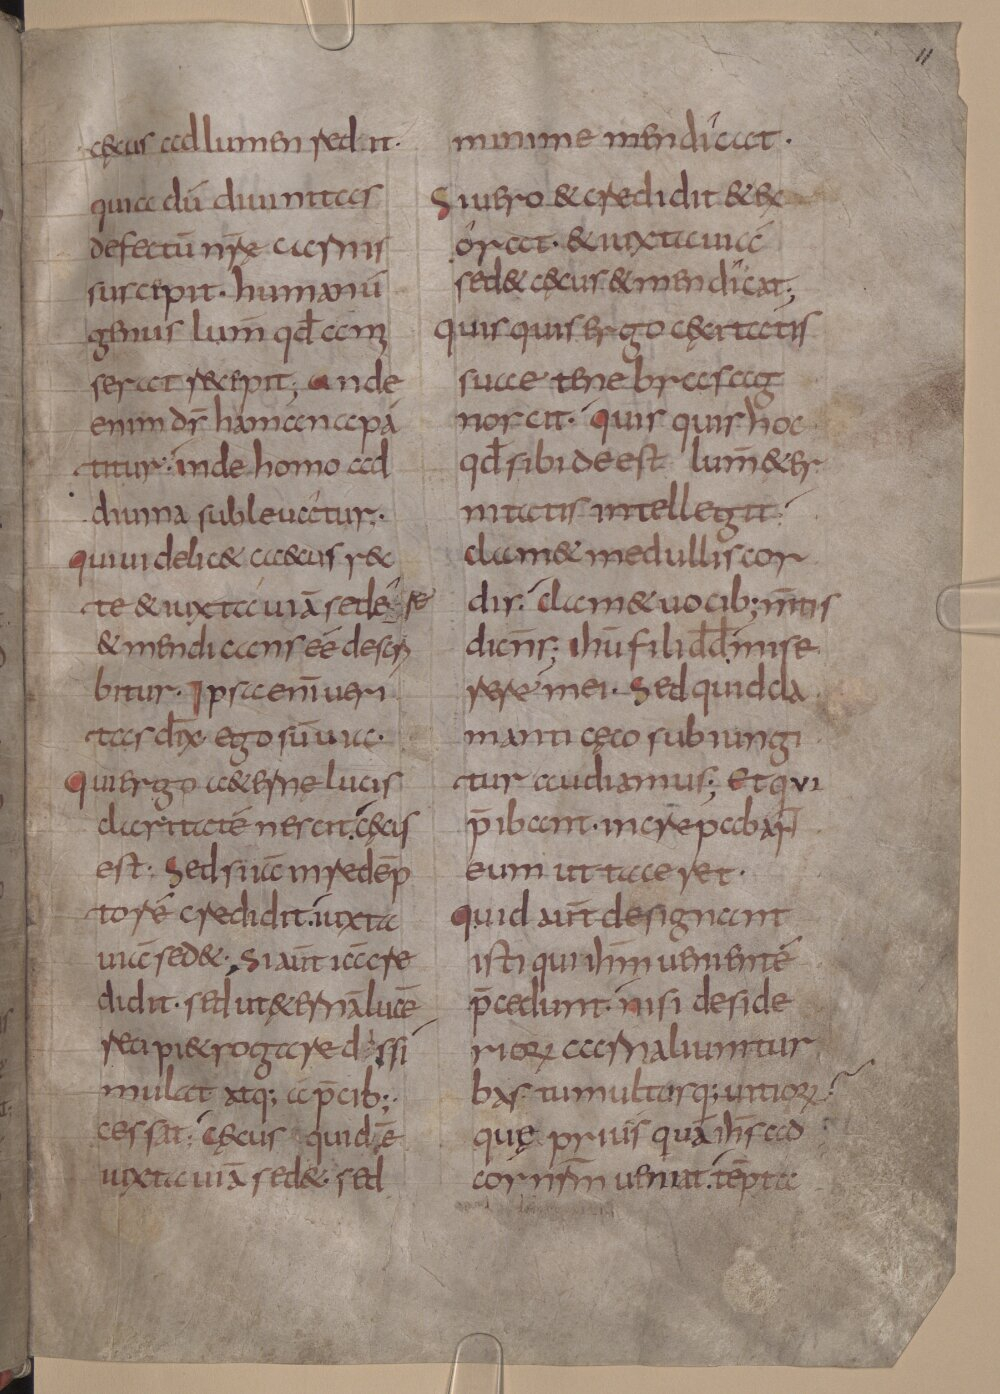 11
cęcus ad lumen redit·
quia dū diuinitas
defectū nr̄ę carnis
suscepit· humanū
genus lum̄ qđ amis
serat recepit; unde
enim ds̄ humana pa
titur· inde homo ad
diuina subleuatur·
Qui uidelic& ca&cus r&
te & iuxta uiā sedere
& mendicans eē descri
bitur· Ipsa enī ueri
tas dix̄ ego sū uia·
Qui ergo a&erne lucis
claritatē nescit. cęcus
est· Sed si iā in redēp
torē credidit. iuxta
uiā sed&· Si aūt iā cre
didit· sed ut &ernā lucē
recipi& rogare dissi
mulat atq; a p̄cib;
cessat· Cęcus quidē
iuxta uiā sed& sed
minime mendicat·
Si uero & credidit & ex
orat· & iuxta uiā
sed& cęcus & mendicat;
quis quis ergo cęcitatis
suae tenebras cog
noscit· quis quis hoc
qđ sibi deest lum̄ &er
nitatis intellegit·
clam& medullis cor
dis· clam& uocib; m̄tis
dicn̄s; ihū fili dd̄ mise
rere mei· Sed quid cla
manti cęco subiungi
tur audiamus; Et qui
p̄ibant· increpabant
eum ut taceret·
Quid aūt designant
isti qui ihm̄ uenientē
p̄cedunt· nisi deside
riorū carnaliū tur
bas tumultusq; uitiorū·
quę prius quā ihs̄ ad
cor nr̄m ueniat. tēpta